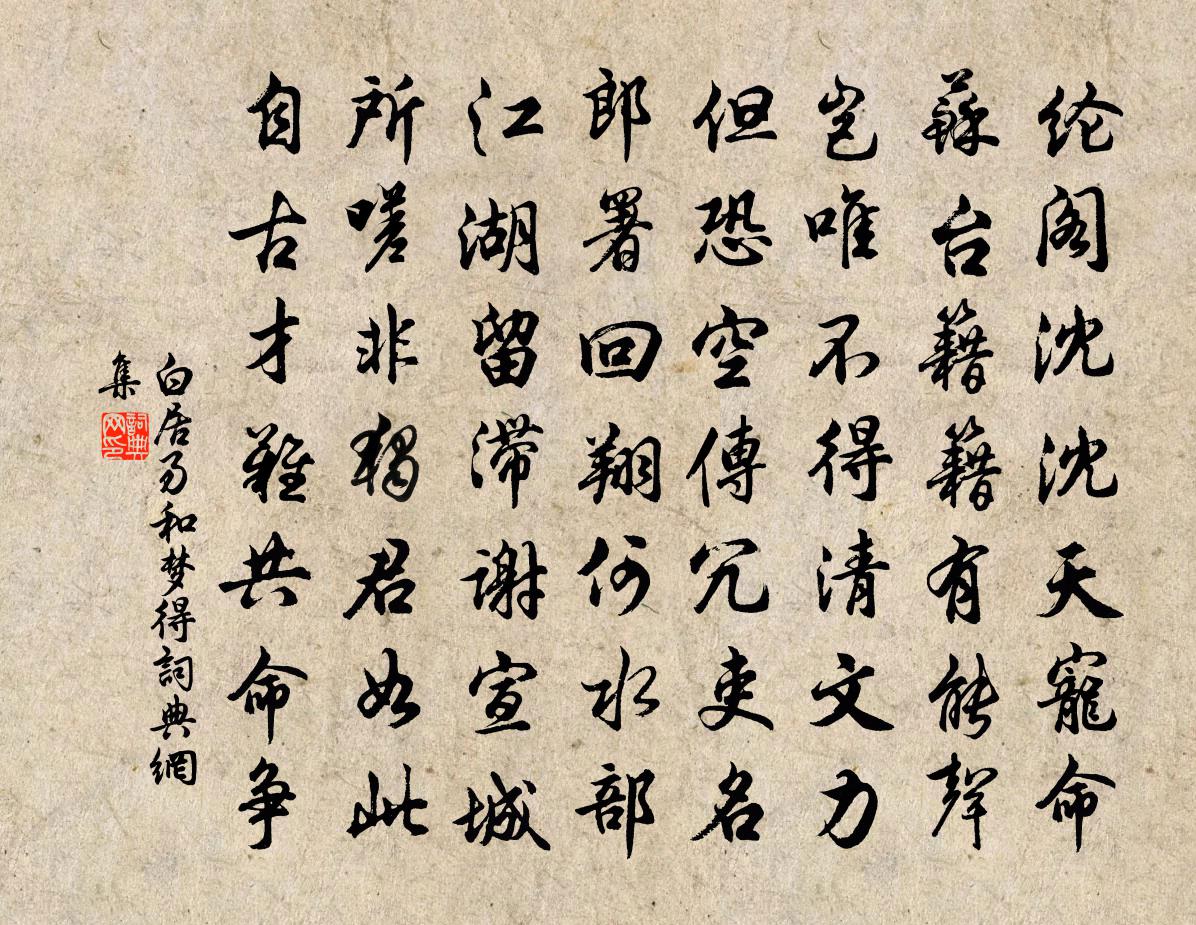 纶阁沈沈天寵命
蘇台籍籍有能聲
豈唯不得清文力
但恐空傳冗吏名
郎署回翔何水部
江湖留滯謝宣城
所嗟非獨君如此
自古才難共命争
白居易和梦得詞典網
集
詞典
网印